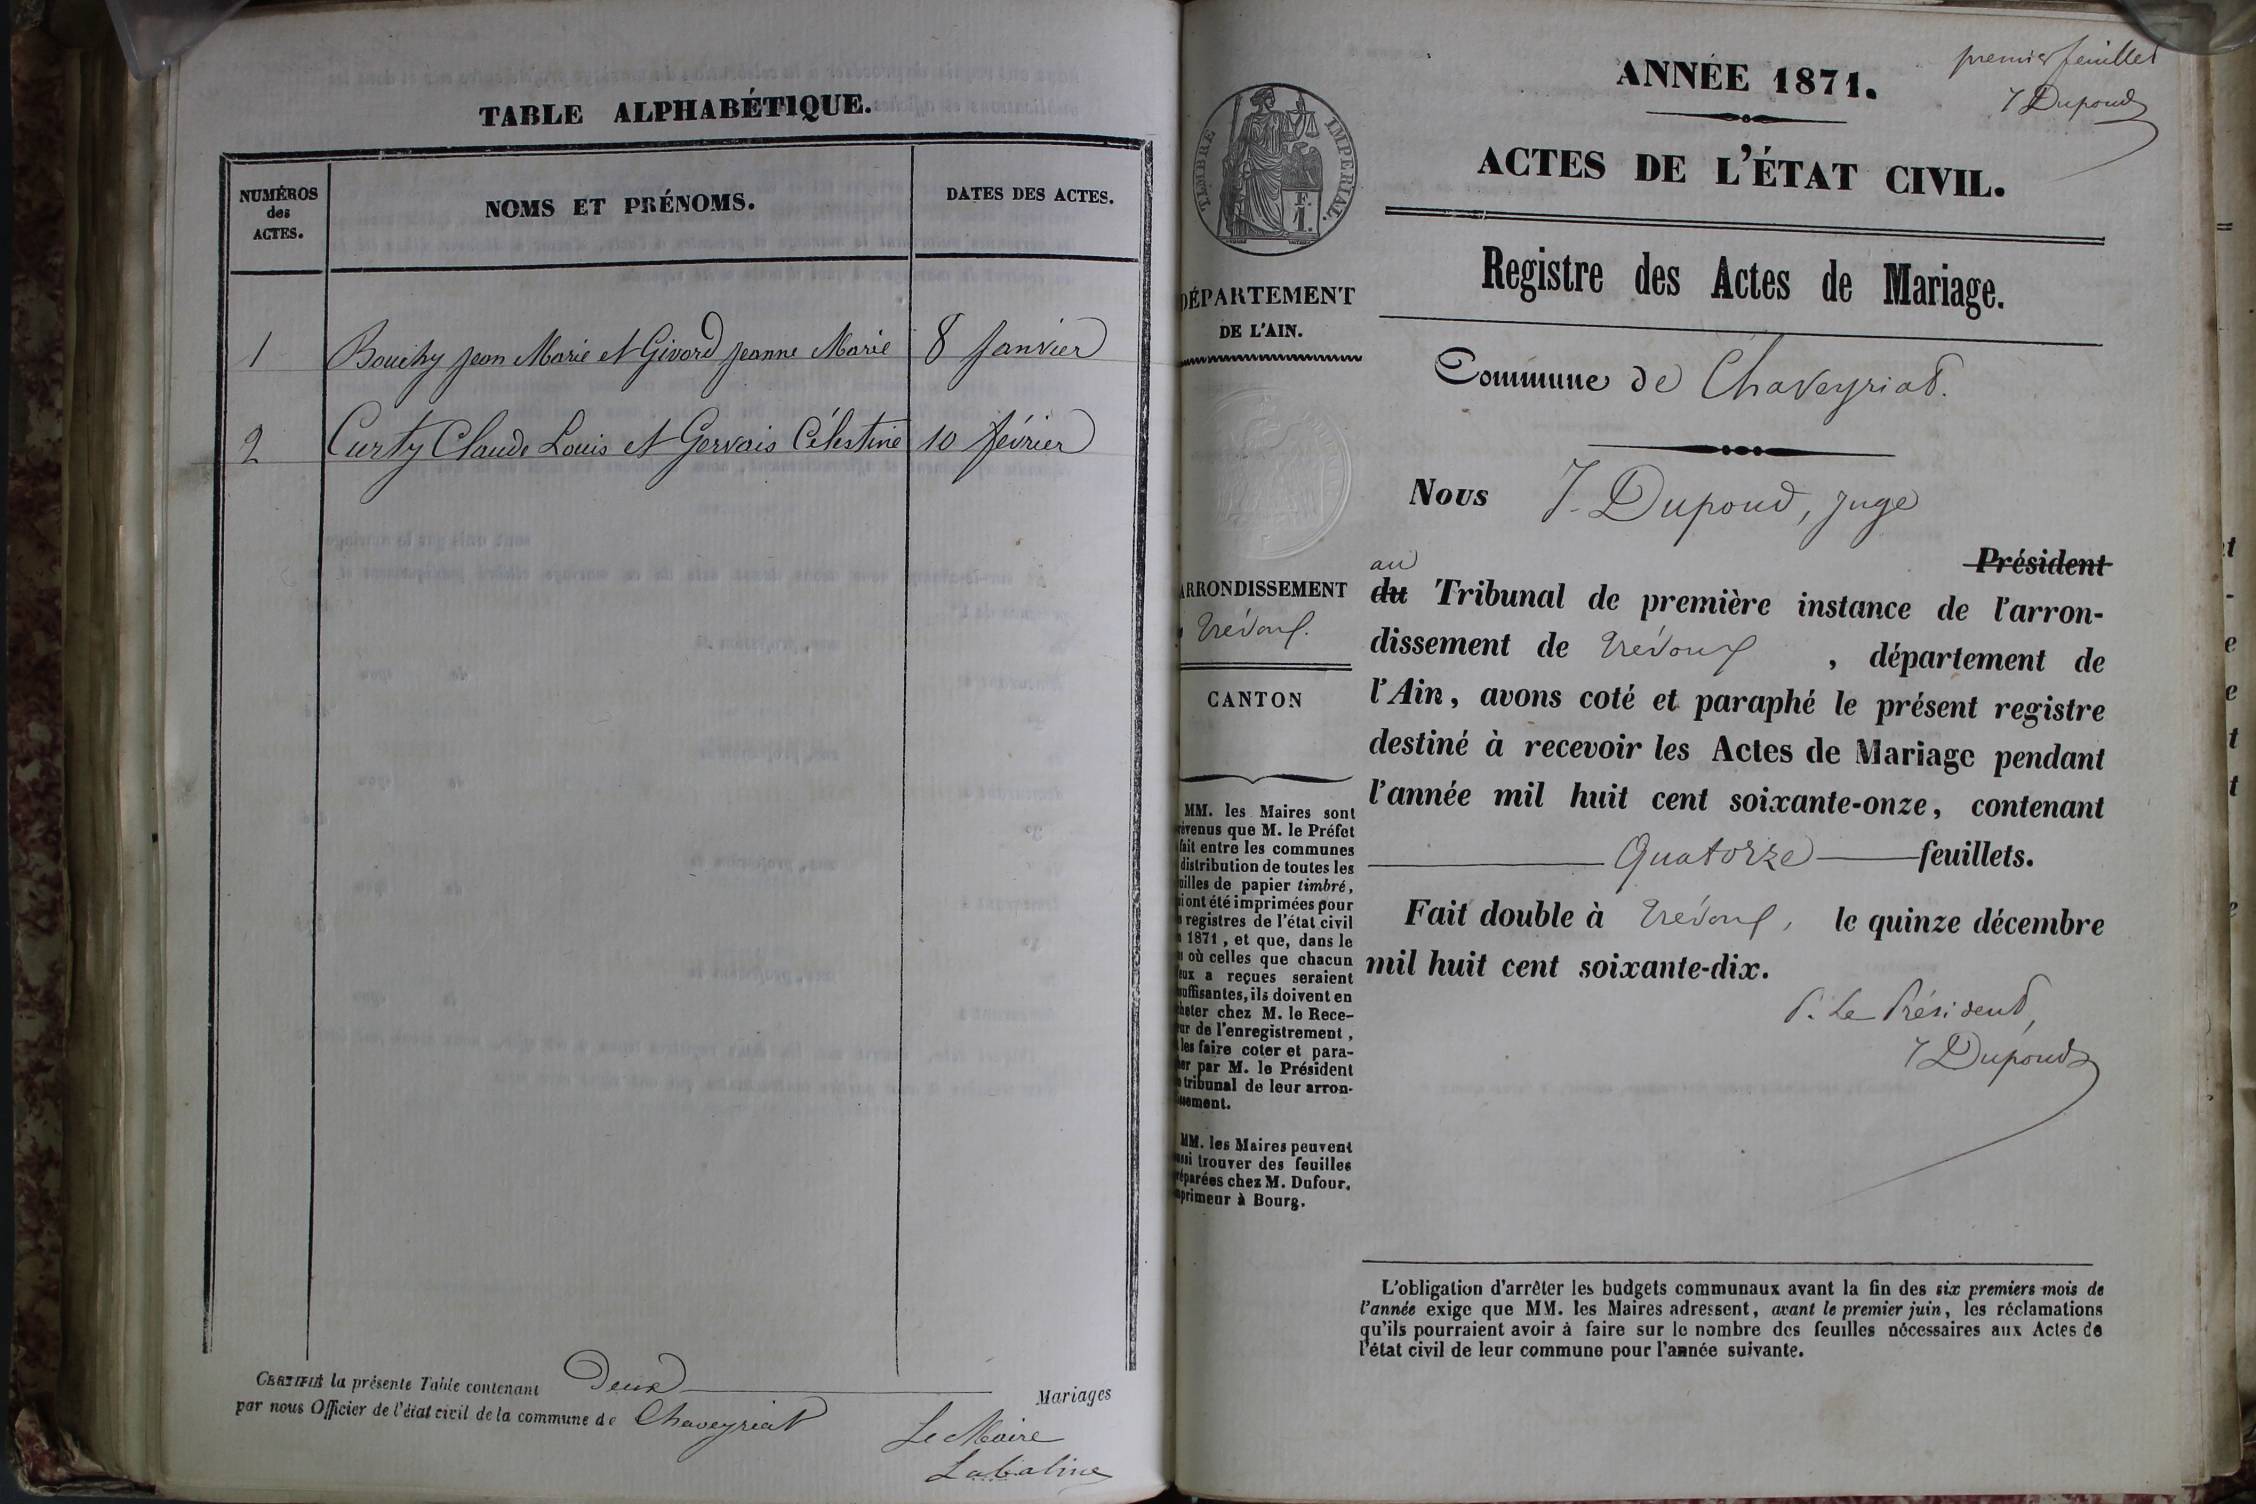 TABLE ALPHABÉTIQUE.
NUMÉROS
des
ACTES.
NOMS ET PRÉNOMS.
DATES DES ACTES.
1 Bouchy Jean Marie et Givord Jeanne Marie 8 Janvier
2 Curty Claude Louis et Gervais Célestine 10 février
CERTIFIÉ la présente Table contenant Deux Mariages
par nous Officier de l'état civil de la commune de Chaveyriat
Le Maire
Labalme
premier feuillet
J Dupoud
ANNÉE 1871.
ACTES DE L'ÉTAT CIVIL.
Registre des Actes de Mariage.
TIMBRE IMPERIAL.
F.
1.
DÉPARTEMENT
DE L'AIN.
Commune de Chaveyriat.
Nous J. Dupoud, juge
Président
au
du Tribunal de première instance de l'arron-
dissement de Trévoux, département de
l'Ain, avons coté et paraphé le présent registre
destiné à recevoir les Actes de Mariage pendant
l'année mil huit cent soixante-onze, contenant
Quatorze feuillets.
Fait double à Trévoux, le quinze décembre
mil huit cent soixante-dix.
P. Le Président,
J Dupoud
ARRONDISSEMENT
Trévoux.
CANTON
MM. les Maires sont
révenus que M. le Préfet
fait entre les communes
distribution de toutes les
uilles de papier timbré,
ui ont été imprimées pour
s registres de l'état civil
n 1871, et que, dans le
s où celles que chacun
eux a reçues seraient
suffisantes, ils doivent en
cheter chez M. le Rece-
ur de l'enregistrement,
les faire coter et para-
her par M. le Président
u tribunal de leur arron-
issement.
MM. les Maires peuvent
ussi trouver des feuilles
réparées chez M. Dufour,
mprimeur à Bourg.
L'obligation d'arrêter les budgets communaux avant la fin des six premiers mois de
l'année exige que MM. les Maires adressent, avant le premier juin, les réclamations
qu'ils pourraient avoir à faire sur le nombre des feuilles nécessaires aux Actes de
l'état civil de leur commune pour l'année suivante.